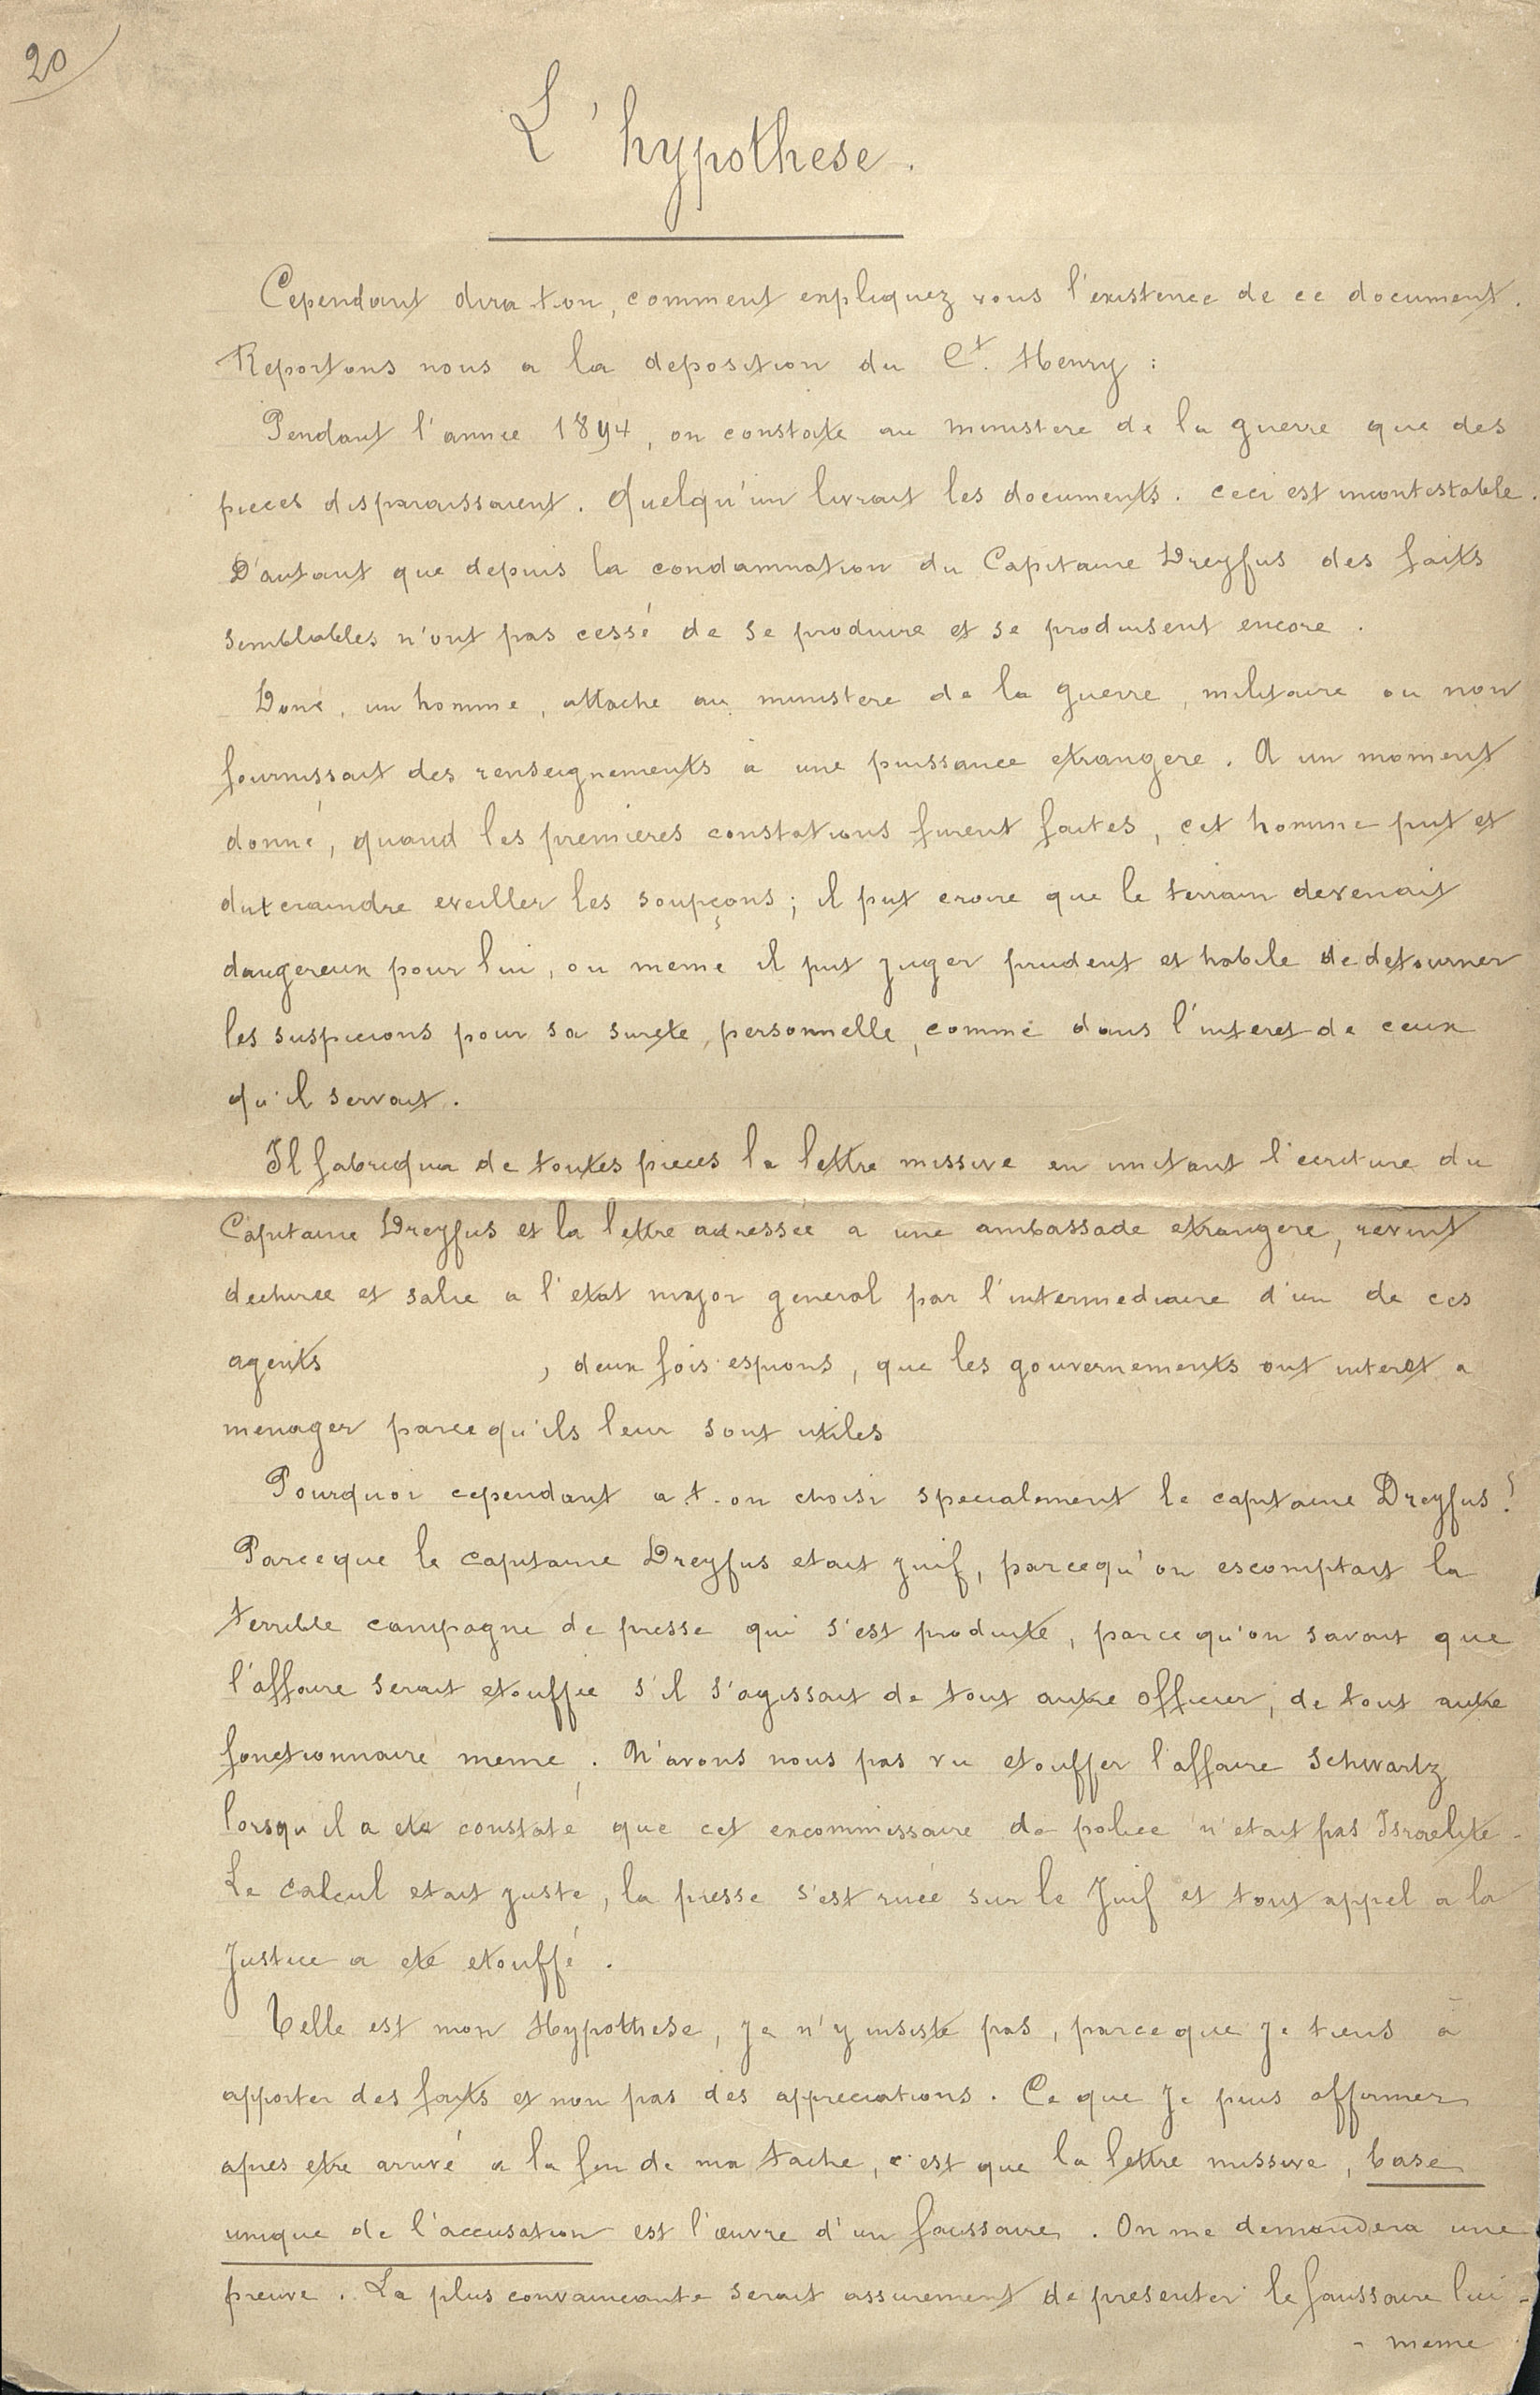 20
L'hypothese.
Cependant dira t on, comment expliquez vous l'existence de ce document.
Reportons nous a la deposition du Ct. Henry :
Pendant l'année 1894, on constate au ministere de la guerre que des
pieces disparaissaient. Quelqu'un livrait les documents. ceci est incontestable.
D'autant que depuis la condamnation du Capitaine Dreyfus des faits
semblables n'ont pas cessé de se produire et se produisent encore.
Donc, un homme, attache au ministere de la guerre, militaire ou non
fournissait des renseignements à une puissance etrangere. A un moment
donné, quand les premieres constations furent faites, cet homme put et
dut craindre eveiller les soupçons; il put croire que le terrain devenait
dangereux pour lui, ou meme il put juger prudent et habile de detourner
les suspicions pour sa surete personnelle, comme dans l'interet de ceux
qu'il servait.
Il fabriqua de toutes pieces la lettre missive en imitant l'ecriture du
Capitaine Dreyfus et la lettre adressée a une ambassade etrangere, revint
dechiree et salie a l'etat major general par l'intermediaire d'un de ces
agents , deux fois espions, que les gouvernements ont interet a
menager parcequ'ils leur sont utiles
Pourquoi cependant a t-on choisi specialement le capitaine Dreyfus?
Parceque le capitaine Dreyfus etait juif, parcequ'on escomptait la
terrible campagne de presse qui s'est produite, parce qu'on savait que
l'affaire serait etouffée s'il s'agissait de tout autre officier, de tout autre
fonctionnaire meme. N'avons nous pas vu etouffer l'affaire Schwartz
lorsqu'il a ete constaté que cet excommissaire de police n'etait pas Israelite.
Le calcul etait juste, la presse s'est ruée sur le Juif et tout appel a la
Justice a ete etouffé.
Telle est mon Hypothese, je n'y insiste pas, parceque je tiens à
apporter des faits et non pas des appreciations. Ce que je puis affirmer
apres etre arrivé a la fin de ma tache, c'est que la lettre missive, base
unique de l'accusation est l'œuvre d'un faussaire. On me demandera une
preuve. La plus convaincante serait assurement de presenter le faussaire lui-
- meme